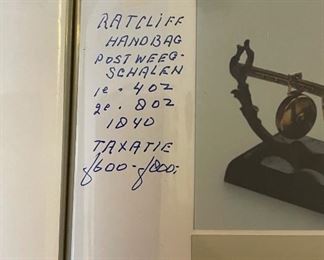 RATCLIFF
HANDBAG
POSTWEEG-
SCHALEN
1e. 4OZ
2e. 8OZ
1840
TAXATIE
ƒ600-ƒ800,-